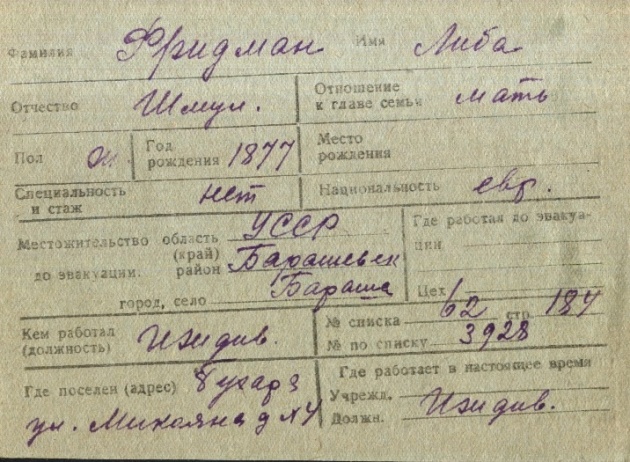 Фамилия Фридман Имя Либа
Отчество Шмул. Отношение к главе семьи мать
Пол ж. Год рождения 1877 Место рождения
Специальность и стаж нет Национальность евр.
Местожительство область УССР Где работал до эвакуа-
(край) ции
до эвакуации. район Барашевск
город, село Бараши Цех
Кем работал № списка 62 стр. 184
(должность) Иждив. № по списку 3928
Где поселен (адрес) Бухара Где работает в настоящее время
Учрежд.
ул. Микояна д Должн. Иждив.